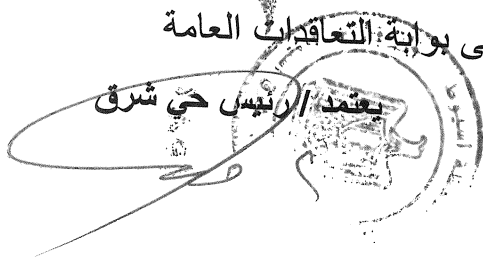 ى بوابة التعاقدات العامة
يعتمد / رئيس حي شرق